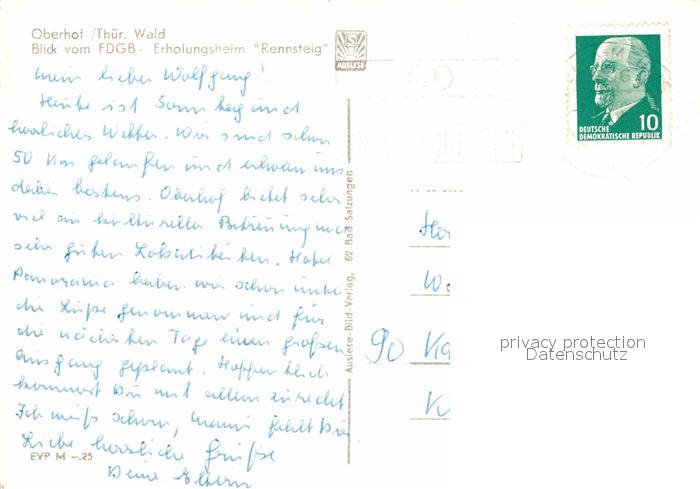 Oberhof /Thür. Wald
Blick vom FDGB - Erholungsheim "Rennsteig"
AUSLESE
Mein lieber Wolfgang!
Heute ist Sonntag und
herrliches Wetter. Wir sind schon
50 km gelaufen und erholen uns
dabei bestens. Oberhof bietet sehr
viel an kultureller Betreuung und
sehr guten Lokalitäten. Hotel
Panorama haben wir schon unter
die Lupe genommen und für
die nächsten Tage einen großen
Ausgang geplant. Hoffentlich
kommst Du mit allem zurecht
Ich muß schon, fehlt Dir
Liebe herzliche Grüße
Deine Eltern
EVP M -.25
Auslese-Bild-Verlag, 62 Bad Salzungen
10
DEUTSCHE
DEMOKRATISCHE REPUBLIK
90
privacy protection
Datenschutz